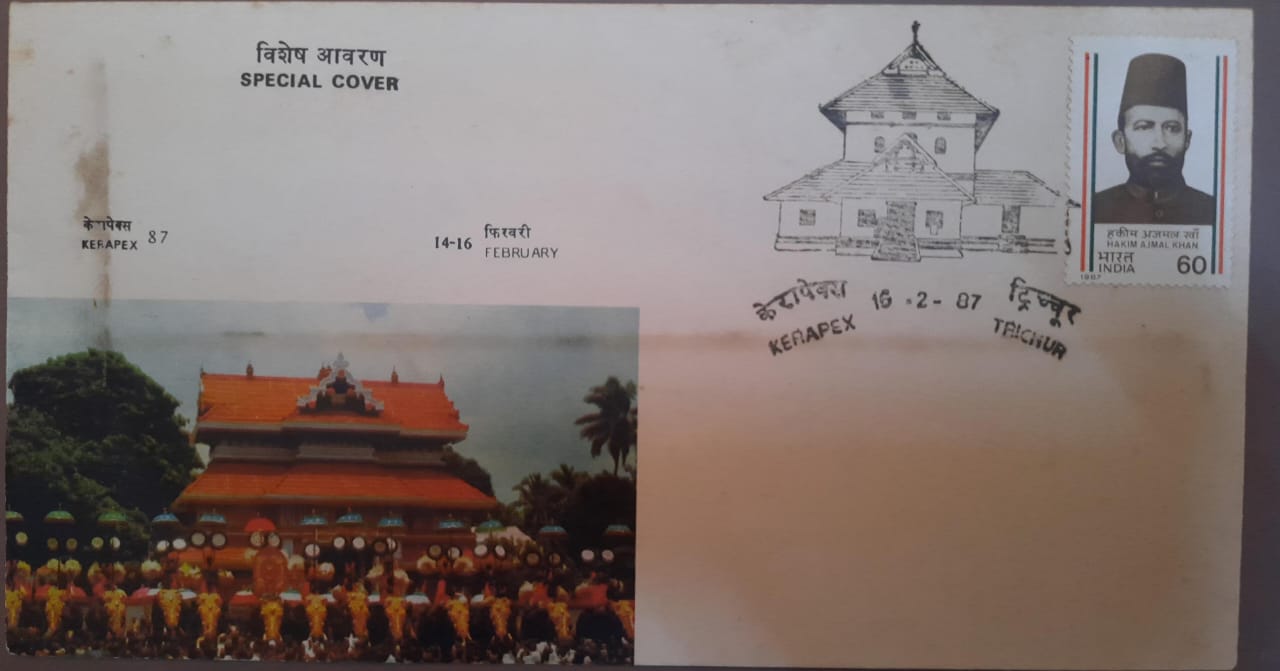 विशेष आवरण
SPECIAL COVER
केरापेक्स
KERAPEX 87
14-16 फिरवरी
FEBRUARY
केरापेक्स 16 -2- 87 ट्रिच्चूर
KERAPEX TRICHUR
हकीम अजमल ख़ाँ
HAKIM AJMAL KHAN
भारत
INDIA 60
1987